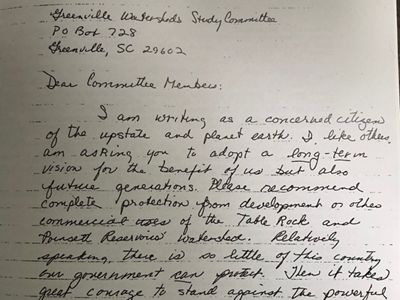 Greenville Watersheds Study Committee
PO Box 728
Greenville, SC 29602
Dear Committee Members:
I am writing as a concerned citizen
of the upstate and planet earth. I, like others,
am asking you to adopt a long-term
vision for the benefit of us but also
future generations. Please recommend
complete protection from development or other
commercial uses of the Table Rock and
Poinsett Reservoirs' Watershed. Relatively
speaking, there is so little of this country
our government can protect. Then it takes
great courage to stand against the powerful